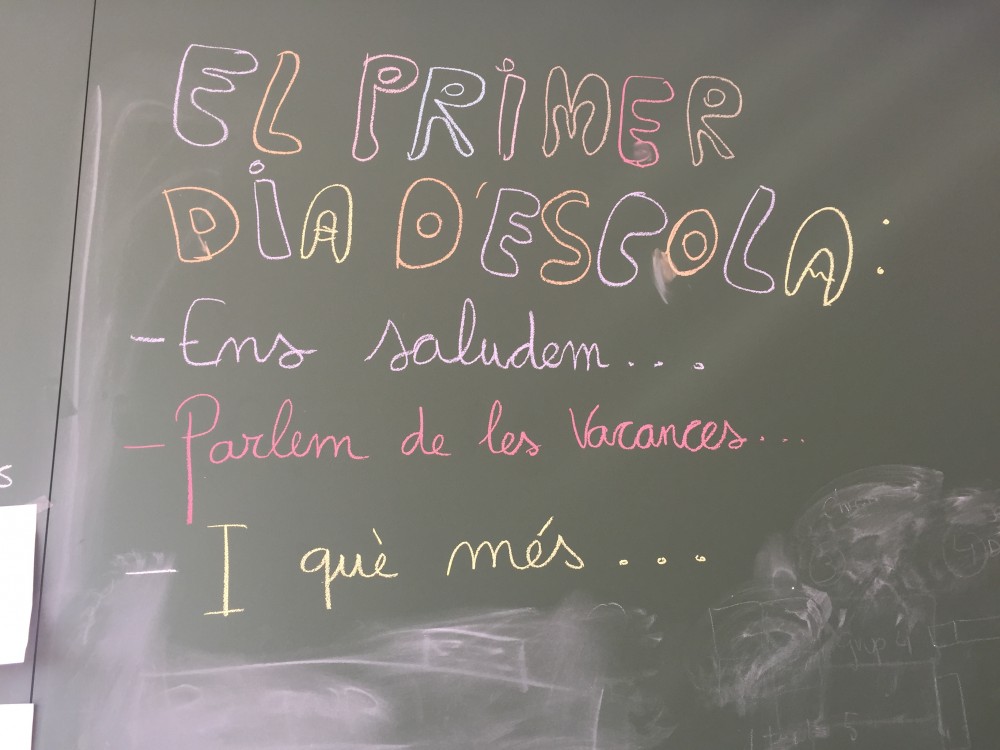 EL PRiMER
DiA D'ESCOLA:
- Ens saludem...
- Parlem de les Vacances...
- I què més...